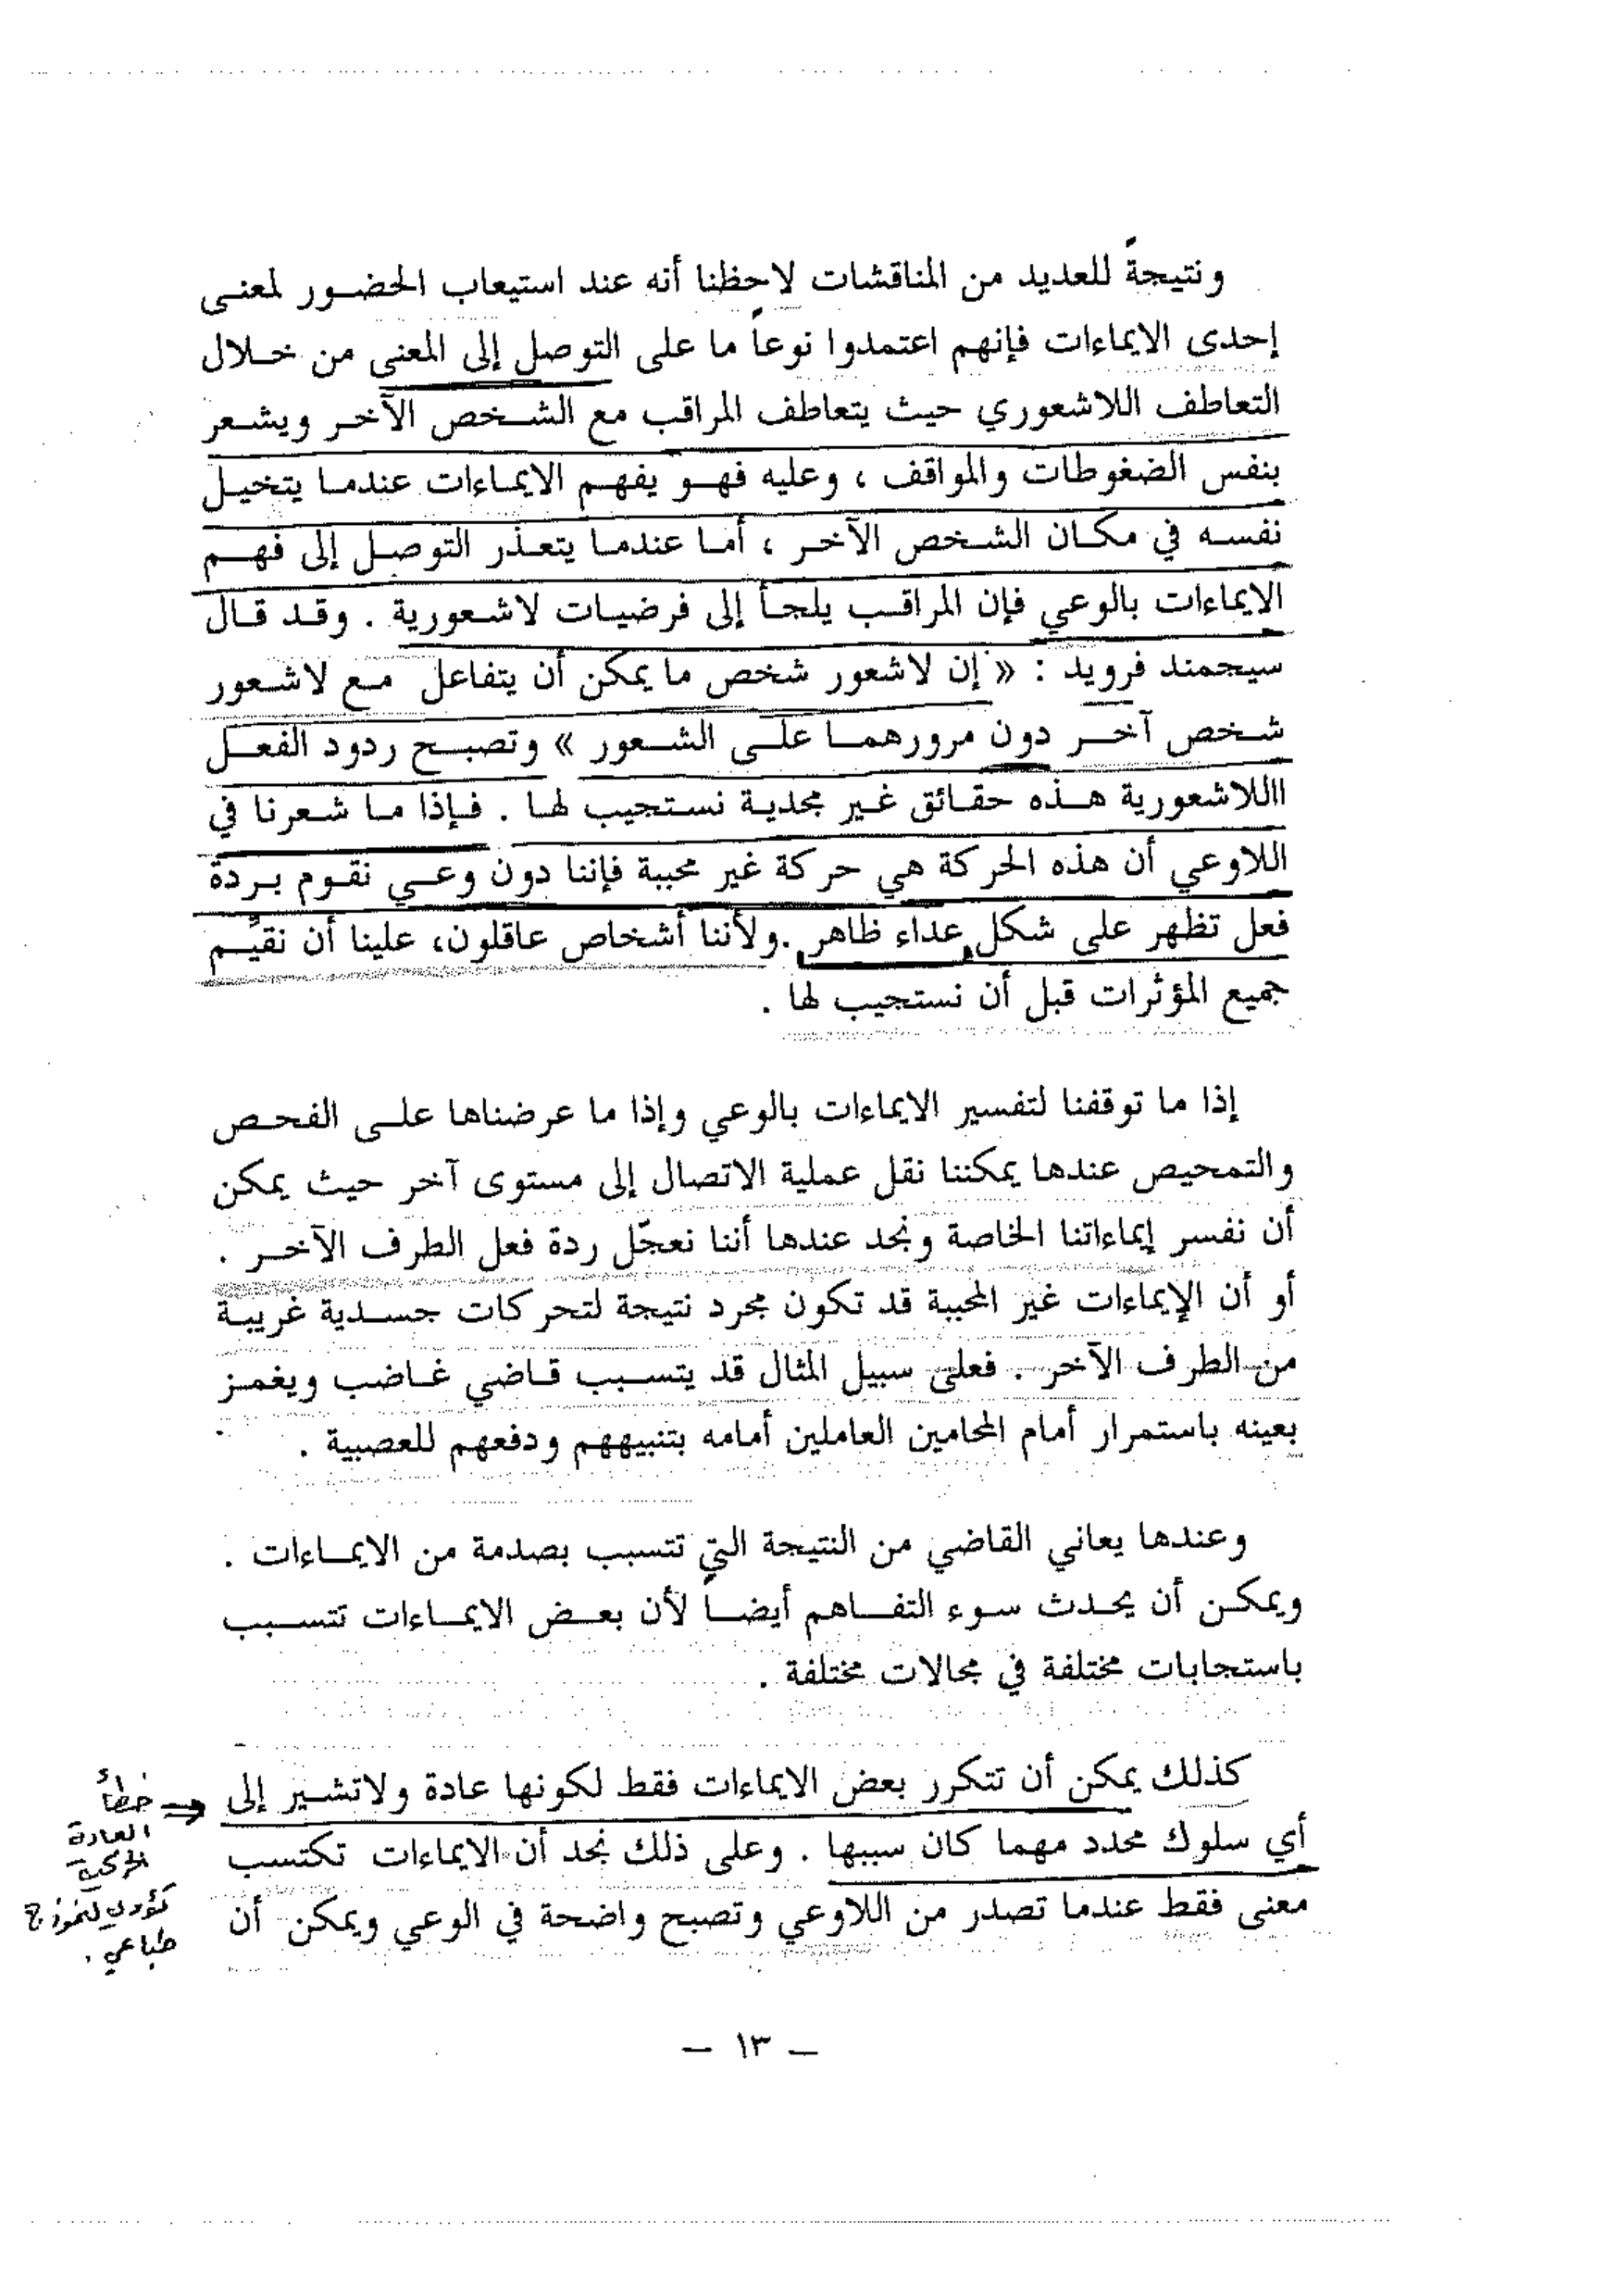 ونتيجةً للعديد من المناقشات لاحظنا أنه عند استيعاب الحضور لمعنى
إحدى الايماءات فإنهم اعتمدوا نوعاً ما على التوصل إلى المعنى من خلال
التعاطف اللاشعوري حيث يتعاطف المراقب مع الشخص الآخر ويشعر
بنفس الضغوطات والمواقف ، وعليه فهو يفهم الايماءات عندما يتخيل
نفسه في مكان الشخص الآخر ، أما عندما يتعذر التوصل إلى فهم
الايماءات بالوعي فإن المراقب يلجأ إلى فرضيات لاشعورية . وقد قال
سيجمند فرويد : « إن لاشعور شخص ما يمكن أن يتفاعل مع لاشعور
شخص آخر دون مرورهما على الشعور » وتصبح ردود الفعل
االلاشعورية هذه حقائق غير مجدية نستجيب لها . فإذا ما شعرنا في
اللاوعي أن هذه الحركة هي حركة غير محببة فإننا دون وعي نقوم بردة
فعل تظهر على شكل عداء ظاهر .ولأننا أشخاص عاقلون، علينا أن نقيّم
جميع المؤثرات قبل أن نستجيب لها .
إذا ما توقفنا لتفسير الايماءات بالوعي وإذا ما عرضناها على الفحص
والتمحيص عندها يمكننا نقل عملية الاتصال إلى مستوى آخر حيث يمكن
أن نفسر إيماءاتنا الخاصة ونجد عندها أننا نعجّل ردة فعل الطرف الآخر .
أو أن الإيماءات غير المحببة قد تكون مجرد نتيجة لتحركات جسدية غريبة
من الطرف الآخر . فعلى سبيل المثال قد يتسبب قاضي غاضب ويغمز
بعينه باستمرار أمام المحامين العاملين أمامه بتنبيههم ودفعهم للعصبية .
وعندها يعاني القاضي من النتيجة التي تتسبب بصدمة من الايماءات .
ويمكن أن يحدث سوء التفاهم أيضاً لأن بعض الايماءات تتسبب
باستجابات مختلفة في مجالات مختلفة .
كذلك يمكن أن تتكرر بعض الايماءات فقط لكونها عادة ولاتشير إلى
أي سلوك محدد مهما كان سببها . وعلى ذلك نجد أن الايماءات تكتسب
معنى فقط عندما تصدر من اللاوعي وتصبح واضحة في الوعي ويمكن أن
خطأ
العادة
الحركية
لنموذج
طباعي .
– ١٣ –